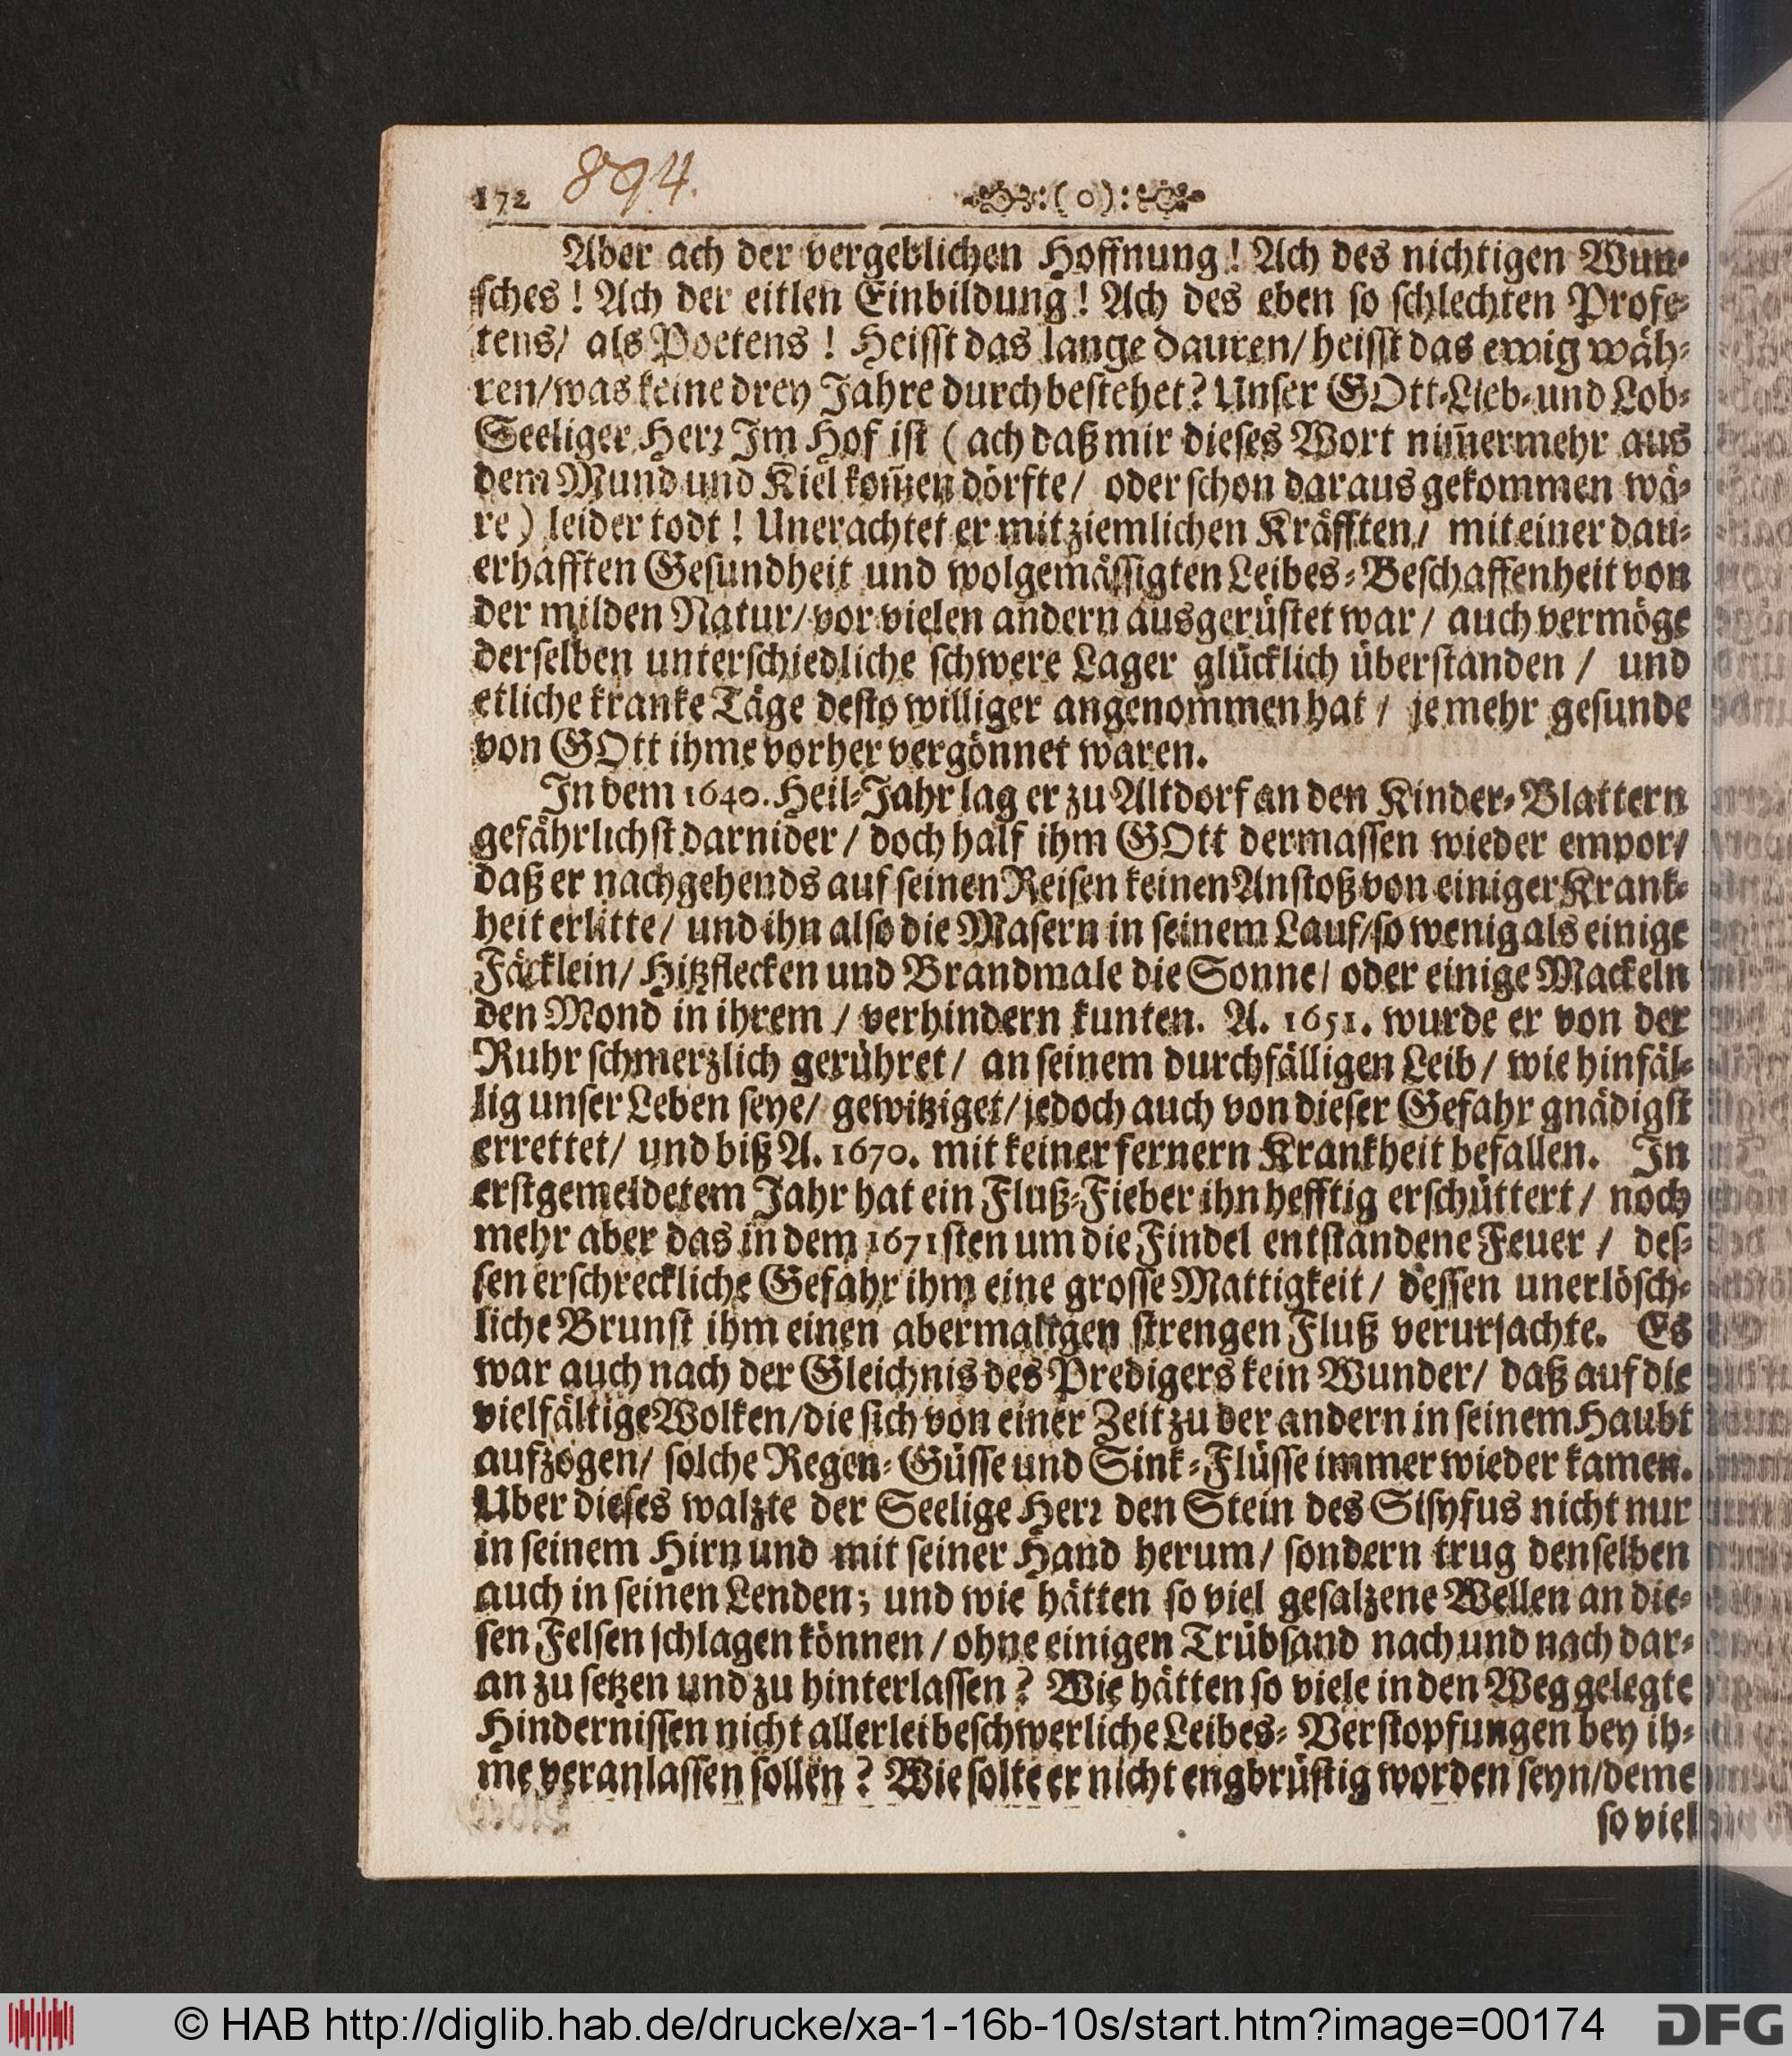 172 894. :(o):
Aber ach der vergeblichen Hoffnung! Ach des nichtigen Wun-
sches! Ach der eitlen Einbildung! Ach des eben so schlechten Profe-
tens/ als Poetens! Heisst das lange dauren/ heisst das ewig wäh-
ren/ was keine drey Jahre durchbestehet? Unser GOtt-Lieb-und Lob-
Seeliger Herr Im Hof ist (ach daß mir dieses Wort nim̃ermehr aus
dem Mund und Kiel kom̃en dörfte/ oder schon daraus gekommen wä-
re) leider todt! Unerachtet er mit ziemlichen Kräfften/ mit einer dau-
erhafften Gesundheit und wolgemässigten Leibes-Beschaffenheit von
der milden Natur/ vor vielen andern ausgerüstet war/ auch vermöge
derselben unterschiedliche schwere Lager glücklich überstanden/ und
etliche kranke Täge desto williger angenommen hat/ je mehr gesunde
von GOtt ihme vorher vergönnet waren.
In dem 1640. Heil-Jahr lag er zu Altdorf an den Kinder-Blattern
gefährlichst darnider/ doch half ihm GOtt dermassen wieder empor/
daß er nachgehends auf seinen Reisen keinen Anstoß von einiger Krank-
heit erlitte/ und ihn also die Masern in seinem Lauf/ so wenig als einige
Fäcklein/ Hitzflecken und Brandmale die Sonne/ oder einige Mackeln
den Mond in ihrem/ verhindern kunten. A. 1651. wurde er von der
Ruhr schmerzlich gerühret/ an seinem durchfälligen Leib/ wie hinfäl-
lig unser Leben seye/ gewitziget/ jedoch auch von dieser Gefahr gnädigst
errettet/ und biß A. 1670. mit keiner fernern Krankheit befallen. In
erstgemeldetem Jahr hat ein Fluß-Fieber ihn hefftig erschüttert/ noch
mehr aber das in dem 1671sten um die Findel entstandene Feuer/ des-
sen erschreckliche Gefahr ihm eine grosse Mattigkeit/ dessen unerlösch-
liche Brunst ihm einen abermaligen strengen Fluß verursachte. Es
war auch nach der Gleichnis des Predigers kein Wunder/ daß auf die
vielfältige Wolken/ die sich von einer Zeit zu der andern in seinem Haubt
aufzogen/ solche Regen-Güsse und Sink-Flüsse immer wieder kamen.
Uber dieses walzte der Seelige Herr den Stein des Sisyfus nicht nur
in seinem Hirn und mit seiner Hand herum/ sondern trug denselben
auch in seinen Lenden; und wie hätten so viel gesalzene Wellen an die-
sen Felsen schlagen können/ ohne einigen Trübsand nach und nach dar-
an zu setzen und zu hinterlassen? Wie hätten so viele in den Weg gelegte
Hindernissen nicht allerlei beschwerliche Leibes-Verstopfungen bey ih-
me veranlassen sollen? Wie solte er nicht engbrüstig worden seyn/ deme
so viel
© HAB http://diglib.hab.de/drucke/xa-1-16b-10s/start.htm?image=00174 DFG